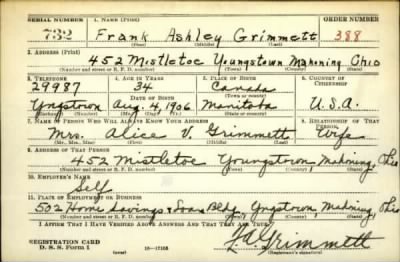 SERIAL NUMBER 1. NAME (Print) ORDER NUMBER
732 Frank Ashley Grimmett 388
(First) (Middle) (Last)
2. ADDRESS (Print)
452 Mistletoe Youngstown Mahoning Ohio
(Number and street or R. F. D. number) (Town) (County) (State)
3. TELEPHONE 4. AGE IN YEARS 5. PLACE OF BIRTH 6. COUNTRY OF CITIZENSHIP
29987 34 Canada
DATE OF BIRTH (Town or county)
Yngstown Aug. 4, 1906 Manitoba U.S.A.
(Exchange) (Number) (Mo.) (Day) (Yr.) (State or country)
7. NAME OF PERSON WHO WILL ALWAYS KNOW YOUR ADDRESS 8. RELATIONSHIP OF THAT PERSON
Mrs. Alice V. Grimmett Wife
(Mr., Mrs., Miss) (First) (Middle) (Last)
9. ADDRESS OF THAT PERSON
452 Mistletoe Youngstown, Mahoning, Ohio
(Number and street or R. F. D. number) (Town) (County) (State)
10. EMPLOYER'S NAME
Self
11. PLACE OF EMPLOYMENT OR BUSINESS
502 Home Savings & Loan Bldg, Yngstown, Mahoning, Ohio
(Number and street or R. F. D. number) (Town) (County) (State)
I AFFIRM THAT I HAVE VERIFIED ABOVE ANSWERS AND THAT THEY ARE TRUE.
REGISTRATION CARD
D. S. S. Form 1 (over) 16—17105 F. A. Grimmett
(Registrant's signature)